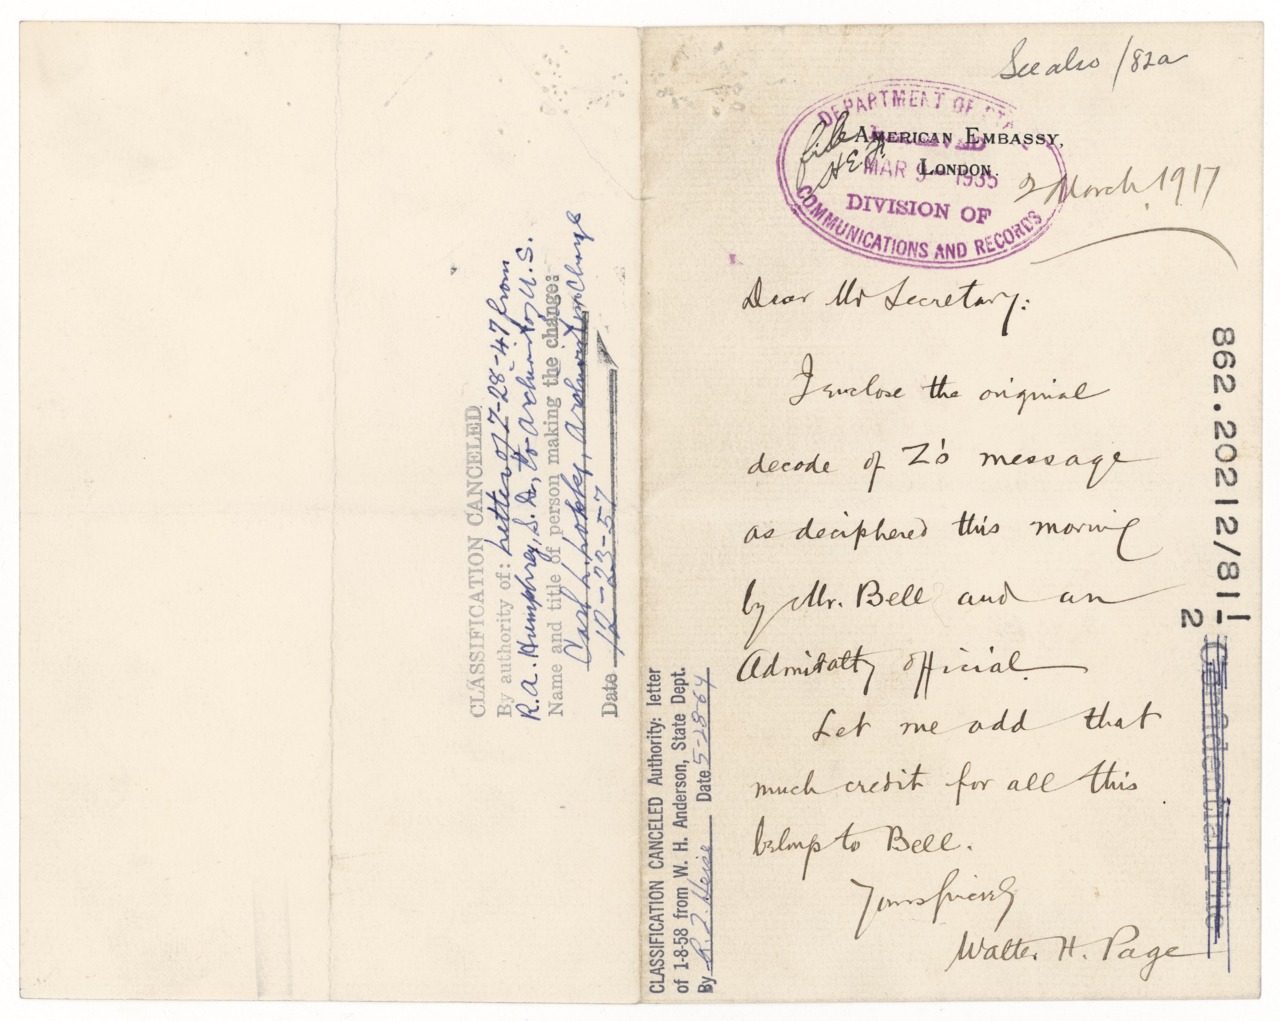 See also /82a
DEPARTMENT OF STATE
RECEIVED
MAR 9 - 1935
DIVISION OF
COMMUNICATIONS AND RECORDS
file
AMERICAN EMBASSY,
LONDON.
2 March, 1917
Dear Mr Secretary:
I enclose the original
decode of Z's message
as deciphered this morning
by Mr. Bell and an
Admiralty official.
Let me add that
much credit for all this
belongs to Bell.
Yours sincerely
Walter H. Page
862.20212/81-1
2
Confidential File
CLASSIFICATION CANCELED Authority: letter
of 1-8-58 from W. H. Anderson, State Dept.
By R. J. Heise Date 5-28-64
CLASSIFICATION CANCELED
By authority of: letter of 7-28-47 from
R. A. Humphrey, S. D., to Archivist of U. S.
Name and title of person making the change:
Carl L. Lokke, Archivist in Charge
Date 12-23-57